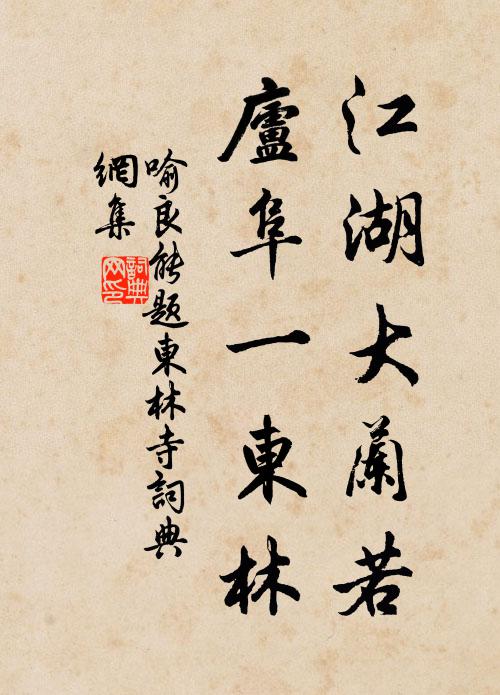 江湖大蘭若
廬阜一東林
喻良能題東林寺詞典
網集
詞典
网印